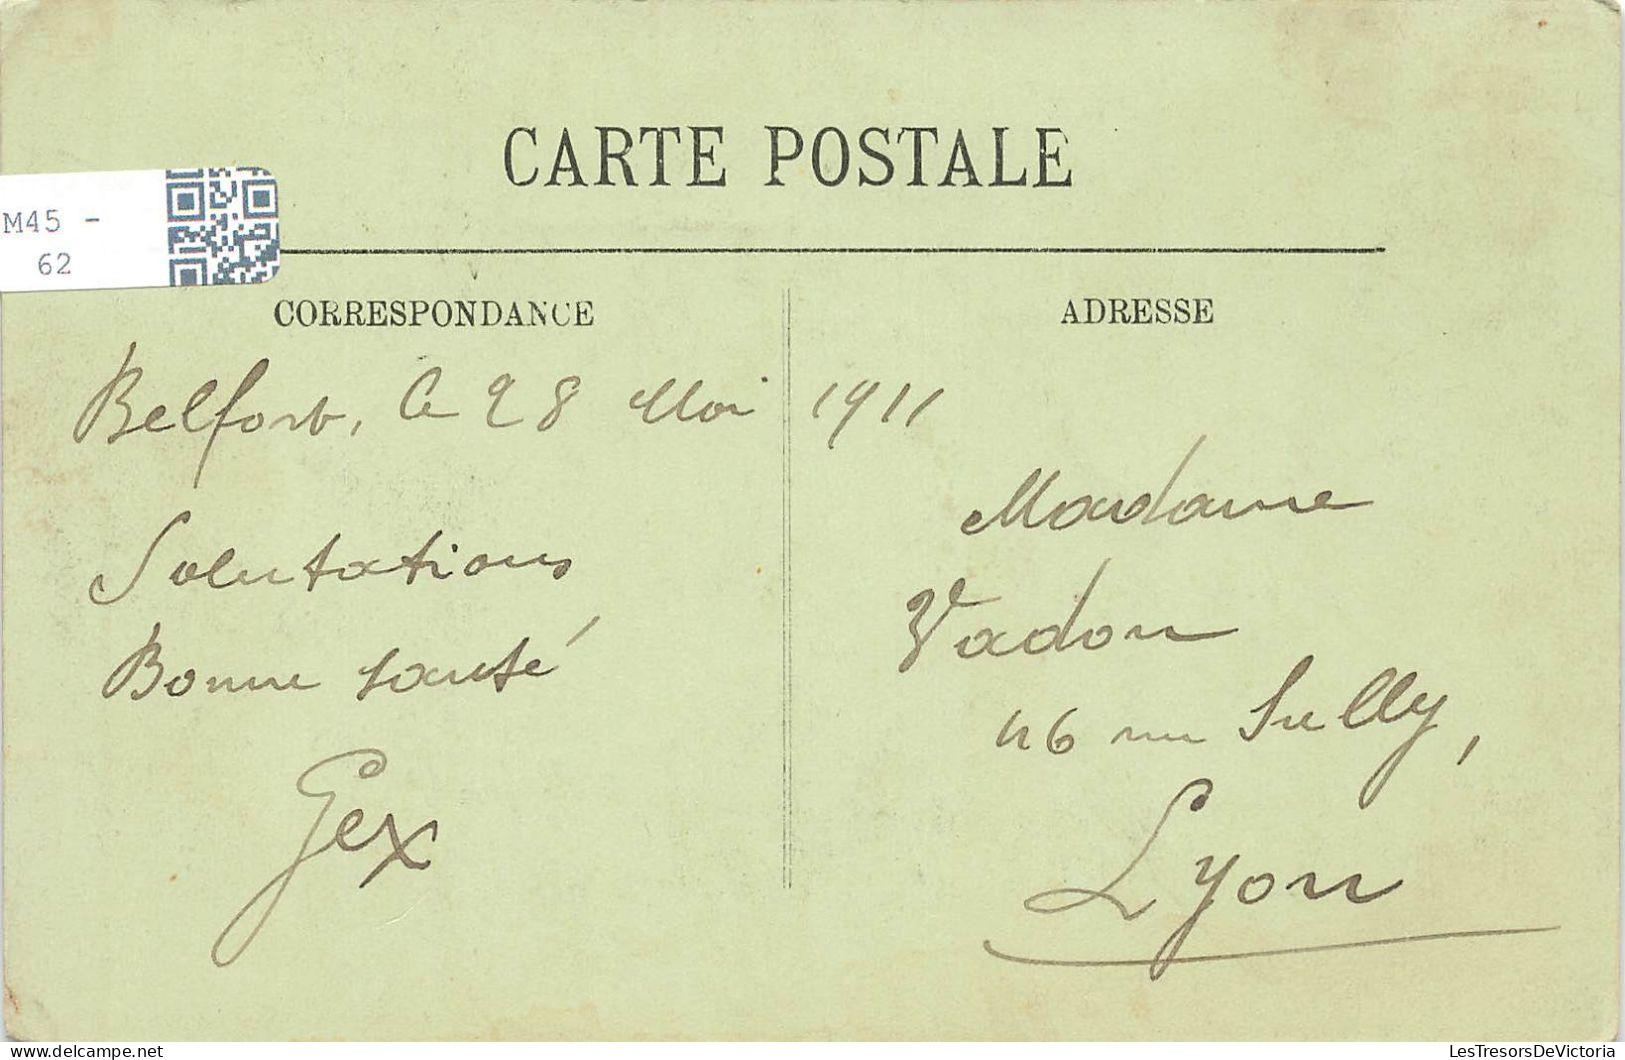 CARTE POSTALE
M45 -
62
CORRESPONDANCE
Belfort, le 28 Mai 1911
Salutations
Bonne santé
Gex
ADRESSE
Madame
Vadon
46 rue Sully,
Lyon
LesTresorsDeVictoria